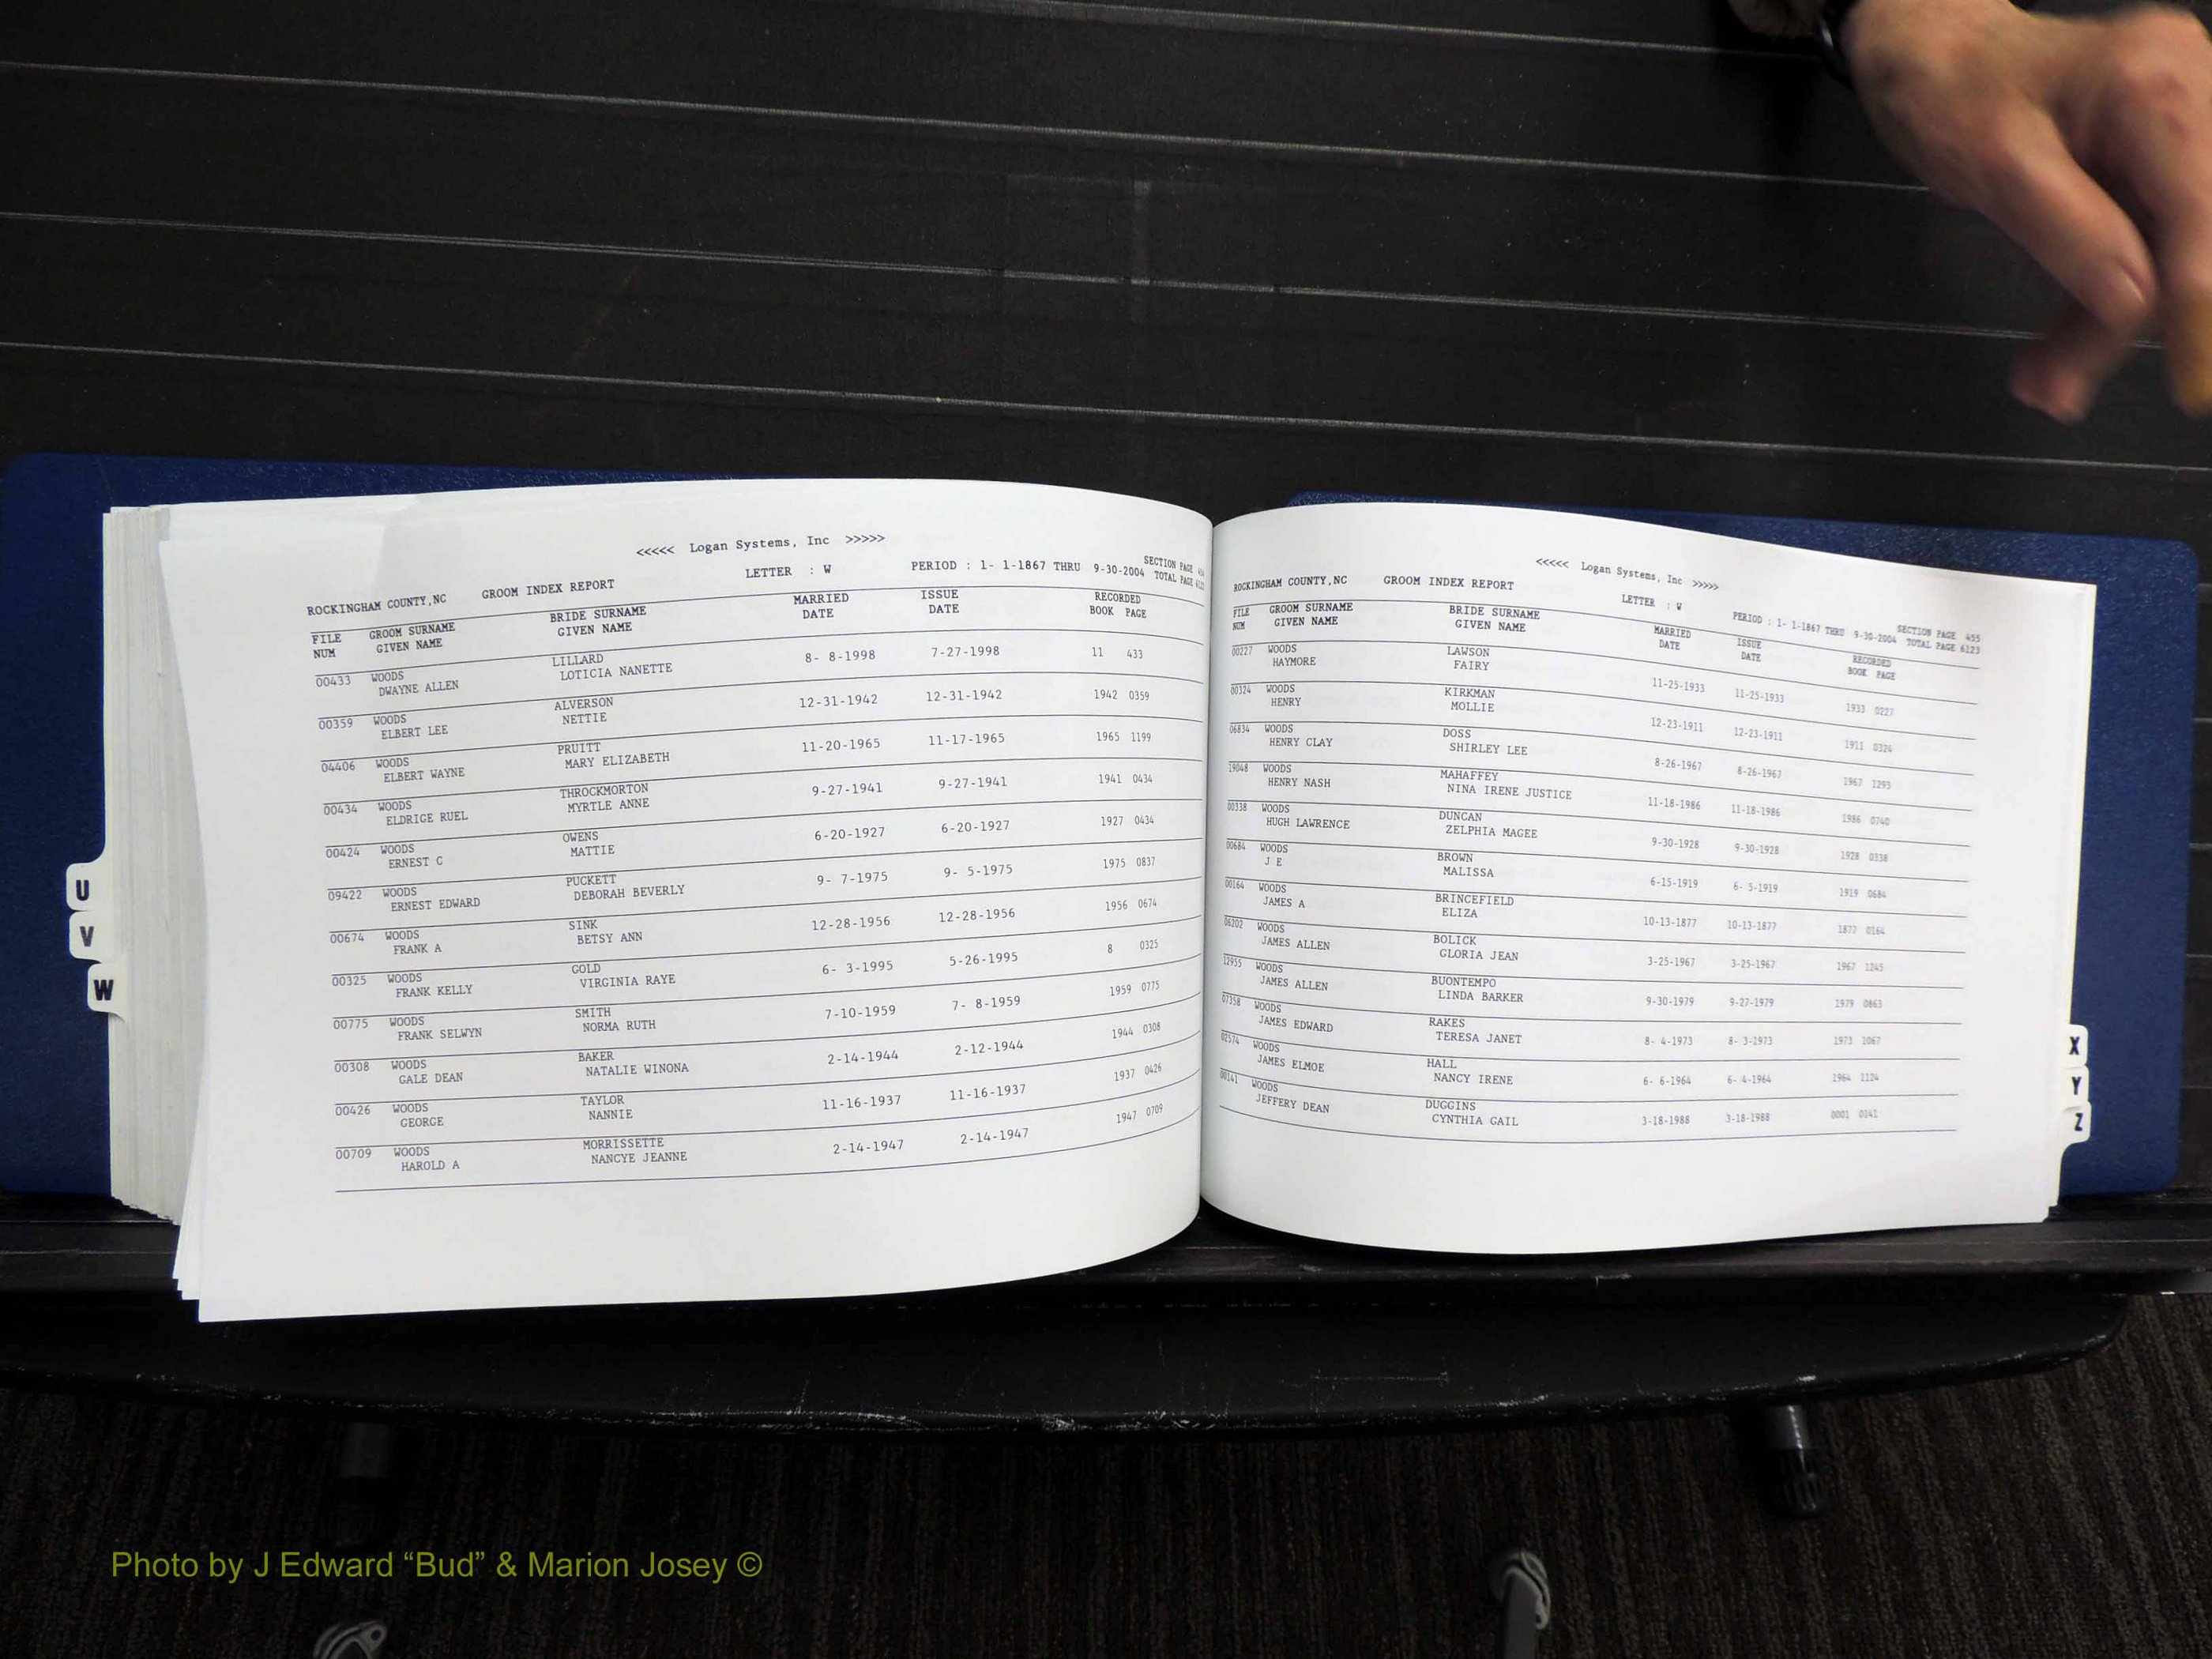 <<<<< Logan Systems, Inc >>>>>
ROCKINGHAM COUNTY,NC GROOM INDEX REPORT LETTER : W PERIOD : 1- 1-1867 THRU 9-30-2004 SECTION PAGE
TOTAL PAGE
FILE GROOM SURNAME BRIDE SURNAME MARRIED ISSUE RECORDED
NUM GIVEN NAME GIVEN NAME DATE DATE BOOK PAGE
00433 WOODS LILLARD 8- 8-1998 7-27-1998 11 433
DWAYNE ALLEN LOTICIA NANETTE
00359 WOODS ALVERSON 12-31-1942 12-31-1942 1942 0359
ELBERT LEE NETTIE
04406 WOODS PRUITT 11-20-1965 11-17-1965 1965 1199
ELBERT WAYNE MARY ELIZABETH
00434 WOODS THROCKMORTON 9-27-1941 9-27-1941 1941 0434
ELDRIGE RUEL MYRTLE ANNE
00424 WOODS OWENS 6-20-1927 6-20-1927 1927 0434
ERNEST C MATTIE
09422 WOODS PUCKETT 9- 7-1975 9- 5-1975 1975 0837
ERNEST EDWARD DEBORAH BEVERLY
00674 WOODS SINK 12-28-1956 12-28-1956 1956 0674
FRANK A BETSY ANN
00325 WOODS GOLD 6- 3-1995 5-26-1995 8 0325
FRANK KELLY VIRGINIA RAYE
00775 WOODS SMITH 7-10-1959 7- 8-1959 1959 0775
FRANK SELWYN NORMA RUTH
00308 WOODS BAKER 2-14-1944 2-12-1944 1944 0308
GALE DEAN NATALIE WINONA
00426 WOODS TAYLOR 11-16-1937 11-16-1937 1937 0426
GEORGE NANNIE
00709 WOODS MORRISSETTE 2-14-1947 2-14-1947 1947 0709
HAROLD A NANCYE JEANNE
U
V
W
<<<<< Logan Systems, Inc >>>>>
ROCKINGHAM COUNTY,NC GROOM INDEX REPORT LETTER : W PERIOD : 1- 1-1867 THRU 9-30-2004 SECTION PAGE 455
TOTAL PAGE 6123
FILE GROOM SURNAME BRIDE SURNAME MARRIED ISSUE RECORDED
NUM GIVEN NAME GIVEN NAME DATE DATE BOOK PAGE
00227 WOODS LAWSON 11-25-1933 11-25-1933 1933 0227
HAYMORE FAIRY
00324 WOODS KIRKMAN 12-23-1911 12-23-1911 1911 0324
HENRY MOLLIE
06834 WOODS DOSS 8-26-1967 8-26-1967 1967 1293
HENRY CLAY SHIRLEY LEE
19048 WOODS MAHAFFEY 11-18-1986 11-18-1986 1986 0740
HENRY NASH NINA IRENE JUSTICE
00338 WOODS DUNCAN 9-30-1928 9-30-1928 1928 0338
HUGH LAWRENCE ZELPHIA MAGEE
00684 WOODS BROWN 6-15-1919 6- 5-1919 1919 0684
J E MALISSA
00164 WOODS BRINCEFIELD 10-13-1877 10-13-1877 1877 0164
JAMES A ELIZA
06202 WOODS BOLICK 3-25-1967 3-25-1967 1967 1245
JAMES ALLEN GLORIA JEAN
12955 WOODS BUONTEMPO 9-30-1979 9-27-1979 1979 0863
JAMES ALLEN LINDA BARKER
07358 WOODS RAKES 8- 4-1973 8- 3-1973 1973 1067
JAMES EDWARD TERESA JANET
02574 WOODS HALL 6- 6-1964 6- 4-1964 1964 1124
JAMES ELMOE NANCY IRENE
00141 WOODS DUGGINS 3-18-1988 3-18-1988 0001 0141
JEFFERY DEAN CYNTHIA GAIL
X
Y
Z
Photo by J Edward “Bud” & Marion Josey ©